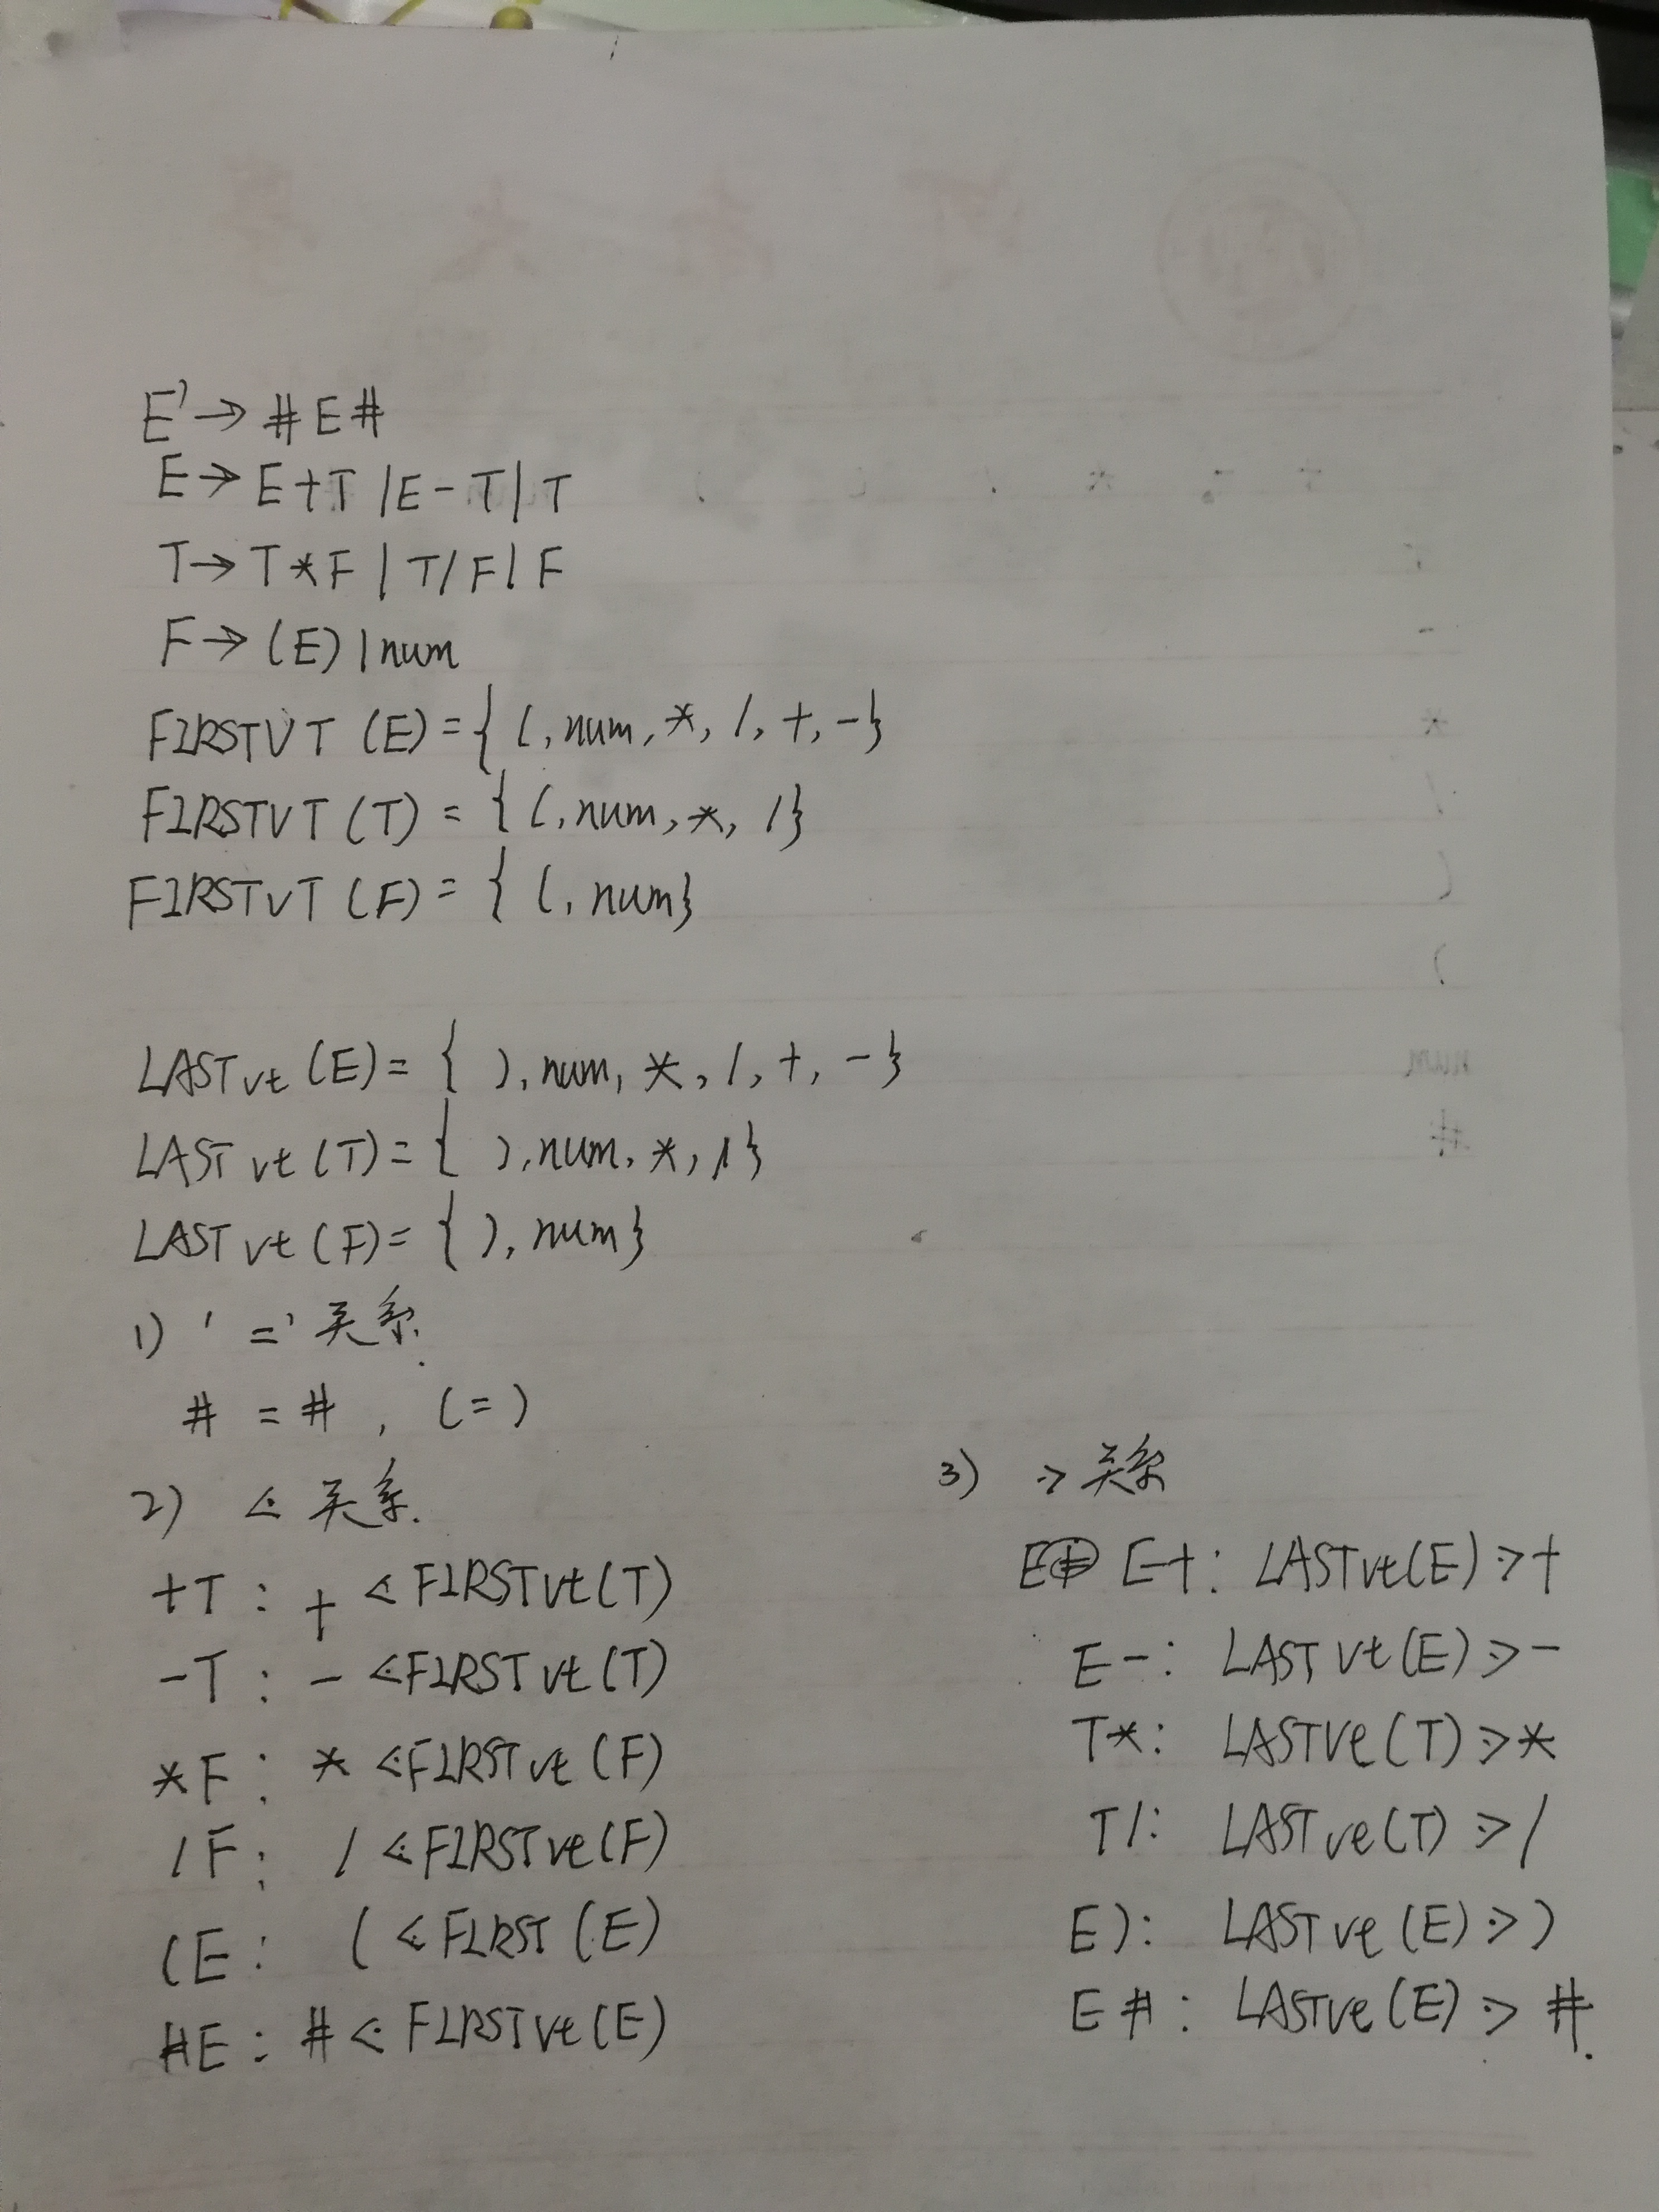 E'→ #E#
E→ E+T |E-T|T
T→ T*F | T/F| F
F→ (E) |num
FIRSTVT (E)={ (, num, *, /, +, -}
FIRSTVT (T) = { (, num, *, /}
FIRSTVT (F) = { (, num}
LASTvt (E)= { ), num, *, /, +, -}
LASTvt (T)= { ), num, *, /}
LASTvt (F)= { ), num}
1) '=' 关系.
# = # , (=)
2) ⋖ 关系.
+T : + ⋖ FIRSTvt(T)
-T : - ⋖FIRSTvt(T)
*F : * ⋖FIRSTvt (F)
/F : / ⋖FIRSTvt(F)
(E : ( ⋖ FIRST (E)
#E : # ⋖ FIRSTvt(E)
3) ⋗ 关系
E+ : LASTvt(E) ⋗ +
E- : LASTvt(E) ⋗ -
T* : LASTvt(T) ⋗ *
T/ : LASTvt(T) ⋗ /
E) : LASTvt (E) ⋗ )
E# : LASTvt(E) ⋗ #.